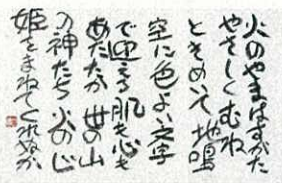 火のやまはすがた
やさしくむね
ときめいて地鳴
空に色よい文字
で迎える肌も心も
あたたか世の山
の神たち火のじ
姫をまねてくれぬか